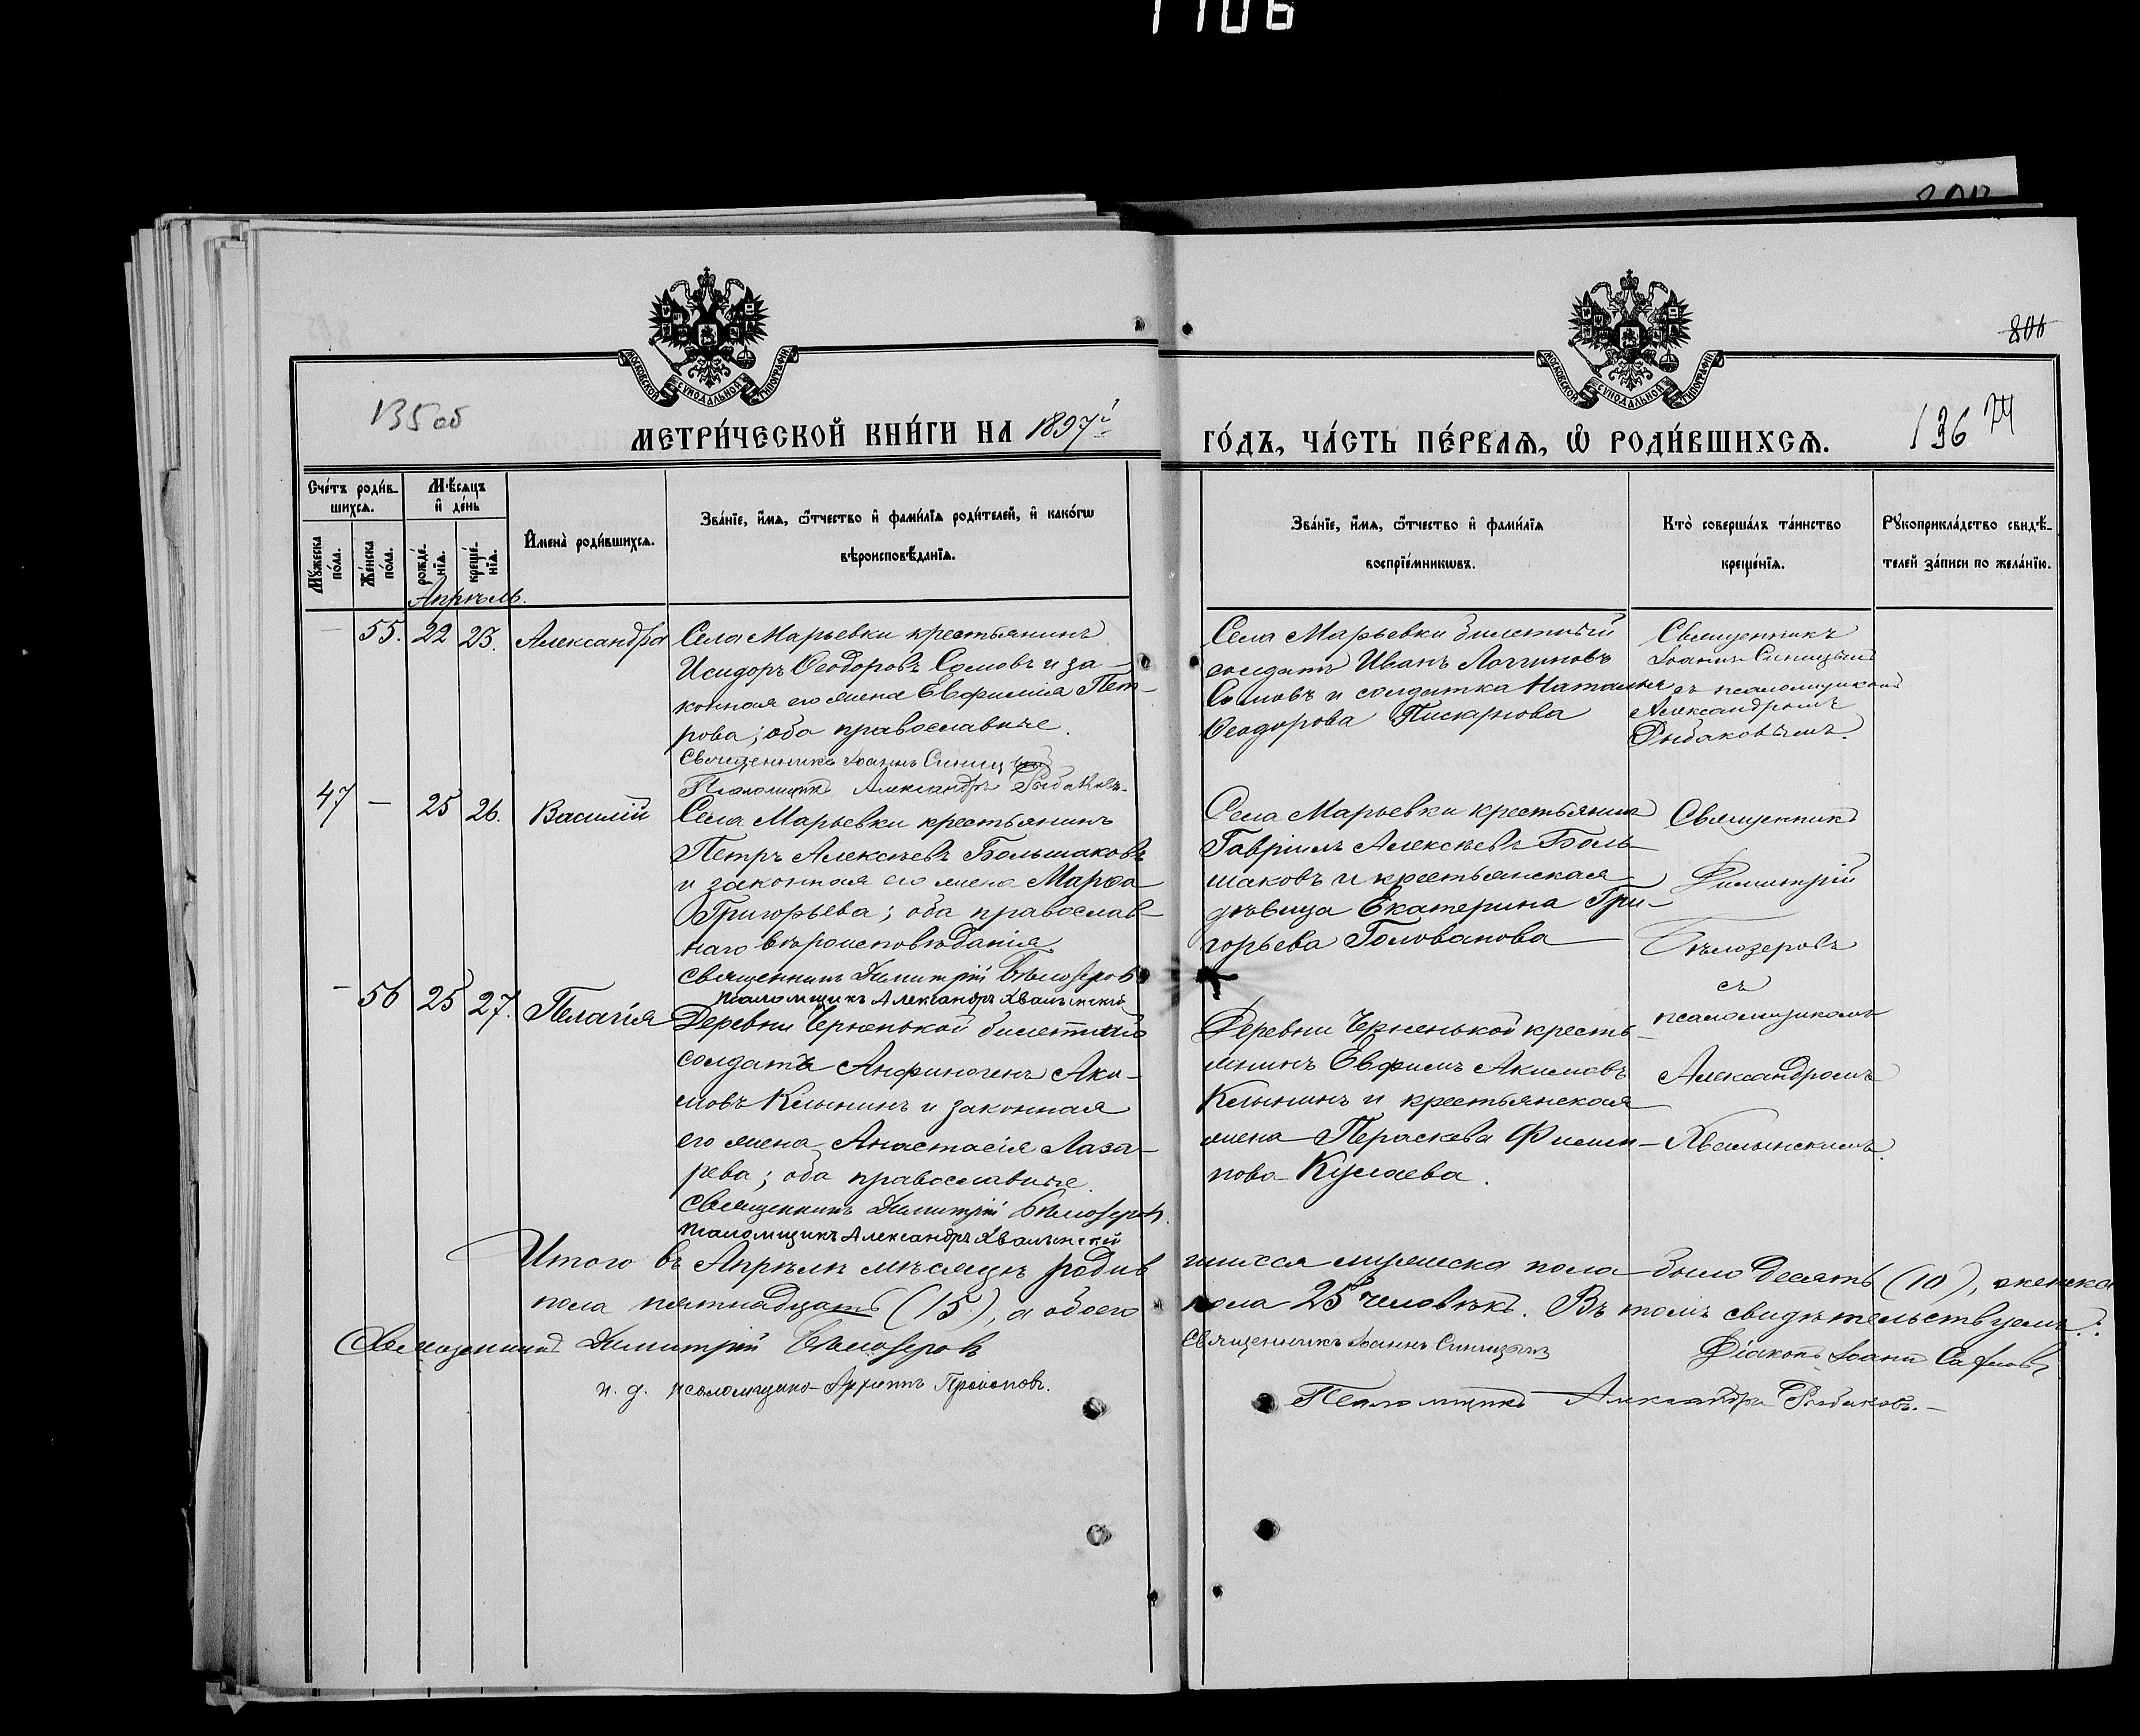 1106
800
МОСКОВСКОЙ СѴНОДАЛЬНОЙ ТИПОГРАФІИ
МОСКОВСКОЙ СѴНОДАЛЬНОЙ ТИПОГРАФІИ
135 об
МЕТРИ́ЧЕСКОЙ КНИ́ГИ НА 1897й
ГО́ДЪ, ЧА́СТЬ ПЕ́РВАѦ, Ѡ҆ РОДИ́ВШИХСѦ.
136
Сче́тъ роди́в-
шихсѧ.
Мѣ́сѧцъ
и҆ де́нь
Мꙋ́жеска
по́ла.
Же́нска
по́ла.
рожде́-
нїѧ.
креще́-
нїѧ.
И҆мена̀ роди́вшихсѧ.
Зва́нїе, и҆́мѧ, ѻ҆́тчество и҆ фами́лїѧ роди́телей, и҆ како́гѡ
вѣроисповѣ́данїѧ.
Зва́нїе, и҆́мѧ, ѻ҆́тчество и҆ фами́лїѧ
воспрїе́мникѡвъ.
Кто̀ соверша́лъ та́инство
креще́нїѧ.
Рꙋкоприкла́дство свидѣ́-
телей за́писи по жела́нїю.
Апрѣль.
— 55. 22 23. Александра
Села Марьевки крестьянинъ
Исидоръ Ѳеодоровъ Сомовъ и за-
конная его жена Евфимія Пет-
рова; оба православные.
Священникъ Іоаннъ Синицынъ
Псаломщикъ Александръ Рыбаковъ.
Села Марьевки билетный
солдатъ Иванъ Логгиновъ
Сомовъ и солдатка Наталья
Ѳеодорова Пискарнова
Священникъ
Іоаннъ Синицынъ
съ псаломщикомъ
Александромъ
Рыбаковымъ.
47 — 25 26. Василій
Села Марьевки крестьянинъ
Петръ Алексѣевъ Большаковъ
и законная его жена Марѳа
Григорьева; оба православ-
наго вѣроисповѣданія.
Священникъ Димитрій Бѣлозеровъ
псаломщикъ Александръ Хвалынскій
Села Марьевки крестьянинъ
Гавріилъ Алексѣевъ Боль-
шаковъ и крестьянская
дѣвица Екатерина Гри-
горьева Голованова
Священникъ
Димитрій
Бѣлозеровъ
съ
псаломщикомъ
Александромъ
Хвалынскимъ.
— 56 25 27. Пелагія
Деревни Черненькой билетный
солдатъ Анфиногенъ Аки-
мовъ Клынинъ и законная
его жена Анастасія Лаза-
рева; оба православные.
Священникъ Димитрій Бѣлозеровъ.
псаломщикъ Александръ Хвалынскій
Деревни Черненькой кресть-
янинъ Евфимъ Акимовъ
Клынинъ и крестьянская
жена Параскева Филип-
пова Кулаева.
Итого въ Апрѣлѣ мѣсяцѣ родив
шихся мужеска пола было десять (10), женска
пола пятнадцать (15), а обоего
пола 25 человѣкъ. Въ томъ свидѣтельствуемъ:
Священникъ Димитрій Бѣлозеровъ
Священникъ Іоаннъ Синицынъ
Діаконъ Іоаннъ
и. д. псаломщика Архиппъ
Псаломщикъ Александръ Рыбаковъ.